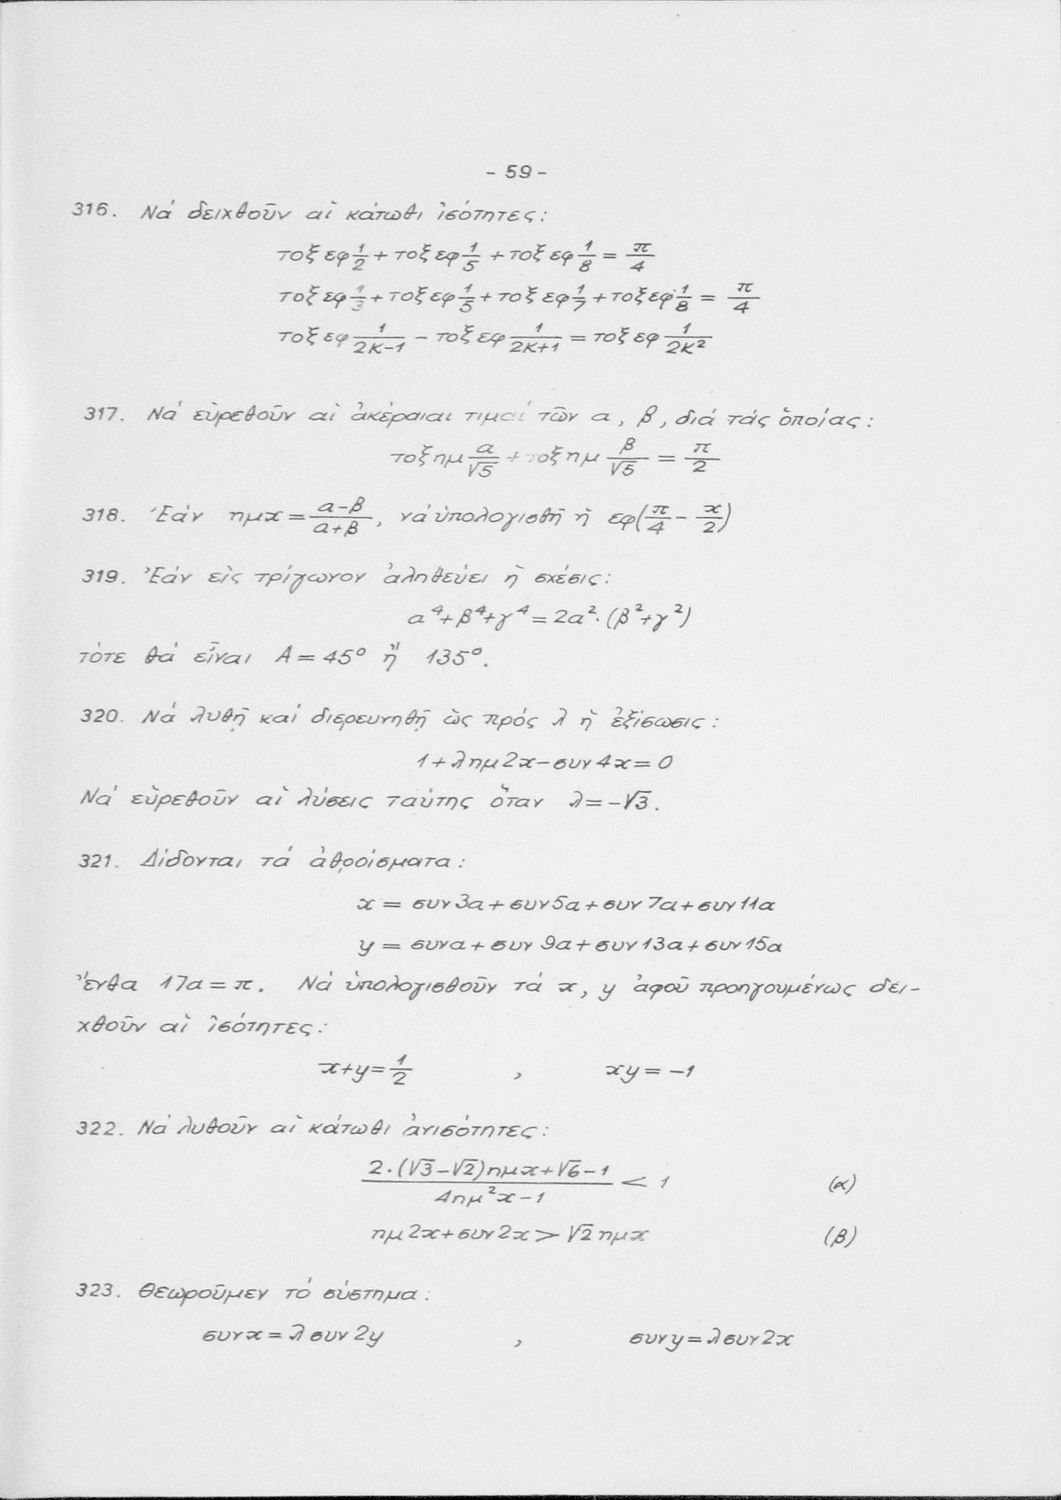 - 59 -
316. Νά δειχθοῦν αἱ κάτωθι ἰσότητες:
τοξ εφ 1/2 + τοξ εφ 1/5 + τοξ εφ 1/8 = π/4
τοξ εφ 1/3 + τοξ εφ 1/5 + τοξ εφ 1/7 + τοξ εφ 1/8 = π/4
τοξ εφ 1/(2κ-1) - τοξ εφ 1/(2κ+1) = τοξ εφ 1/(2κ²)
317. Νά εὑρεθοῦν αἱ ἀκέραιαι τιμαί τῶν α, β, διά τάς ὁποίας:
τοξ ημ α/√5 + τοξ ημ β/√5 = π/2
318. Ἐάν ημx = (α-β)/(α+β), νά ὑπολογισθῇ ἡ εφ(π/4 - x/2)
319. Ἐάν εἰς τρίγωνον ἀληθεύει ἡ σχέσις:
α⁴+β⁴+γ⁴ = 2α²·(β²+γ²)
τότε θά εἶναι Α = 45° ἤ 135°.
320. Νά λυθῇ καί διερευνηθῇ ὡς πρός λ ἡ ἐξίσωσις:
1+λημ2x-συν4x = 0
Νά εὑρεθοῦν αἱ λύσεις ταύτης ὅταν λ = -√3.
321. Δίδονται τά ἀθροίσματα:
x = συν3α+συν5α+συν7α+συν11α
y = συνα+συν9α+συν13α+συν15α
ἔνθα 17α = π. Νά ὑπολογισθοῦν τά x, y ἀφοῦ προηγουμένως δει-
χθοῦν αἱ ἰσότητες:
x+y = 1/2 , xy = -1
322. Νά λυθοῦν αἱ κάτωθι ἀνισότητες:
(2·(√3-√2)ημx+√6-1)/(4ημ²x-1) < 1 (α)
ημ2x+συν2x > √2 ημx (β)
323. Θεωροῦμεν τό σύστημα:
συνx = λσυν2y , συνy = λσυν2x